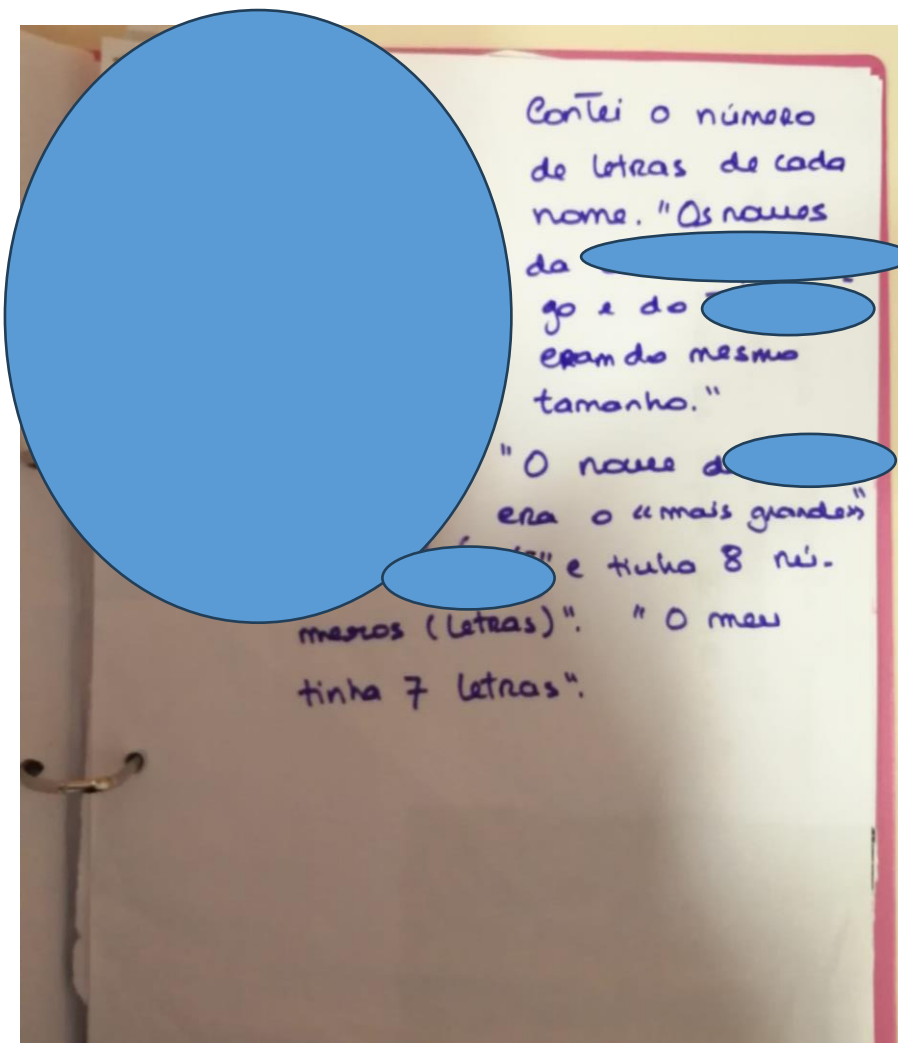 Contei o número
de letras de cada
nome. "Os nomes
da
go e do
eram do mesmo
tamanho."
"O nome d
era o «mais grande»"
" e tinha 8 nú-
meros (letras)". "O meu
tinha 7 letras".